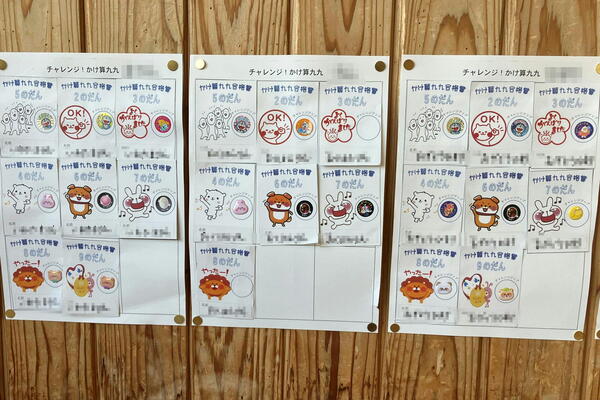 チャレンジ！かけ算九九
かけ算九九合格書
5のだん
かけ算九九合格書
2のだん
OK!
かけ算九九合格書
3のだん
よく がんばり ました
かけ算九九合格書
4のだん
かけ算九九合格書
6のだん
かけ算九九合格書
7のだん
かけ算九九合格書
8のだん
やったー!
かけ算九九合格書
9のだん
チャレンジ！かけ算九九
かけ算九九合格書
5のだん
かけ算九九合格書
2のだん
OK!
かけ算九九合格書
3のだん
よく がんばり ました
かけ算九九合格書
4のだん
かけ算九九合格書
6のだん
かけ算九九合格書
7のだん
かけ算九九合格書
8のだん
やったー!
チャレンジ！かけ算九九
かけ算九九合格書
5のだん
かけ算九九合格書
2のだん
OK!
かけ算九九合格書
3のだん
よく がんばり ました
かけ算九九合格書
4のだん
かけ算九九合格書
6のだん
かけ算九九合格書
7のだん
かけ算九九合格書
8のだん
やったー!
かけ算九九合格書
9のだん